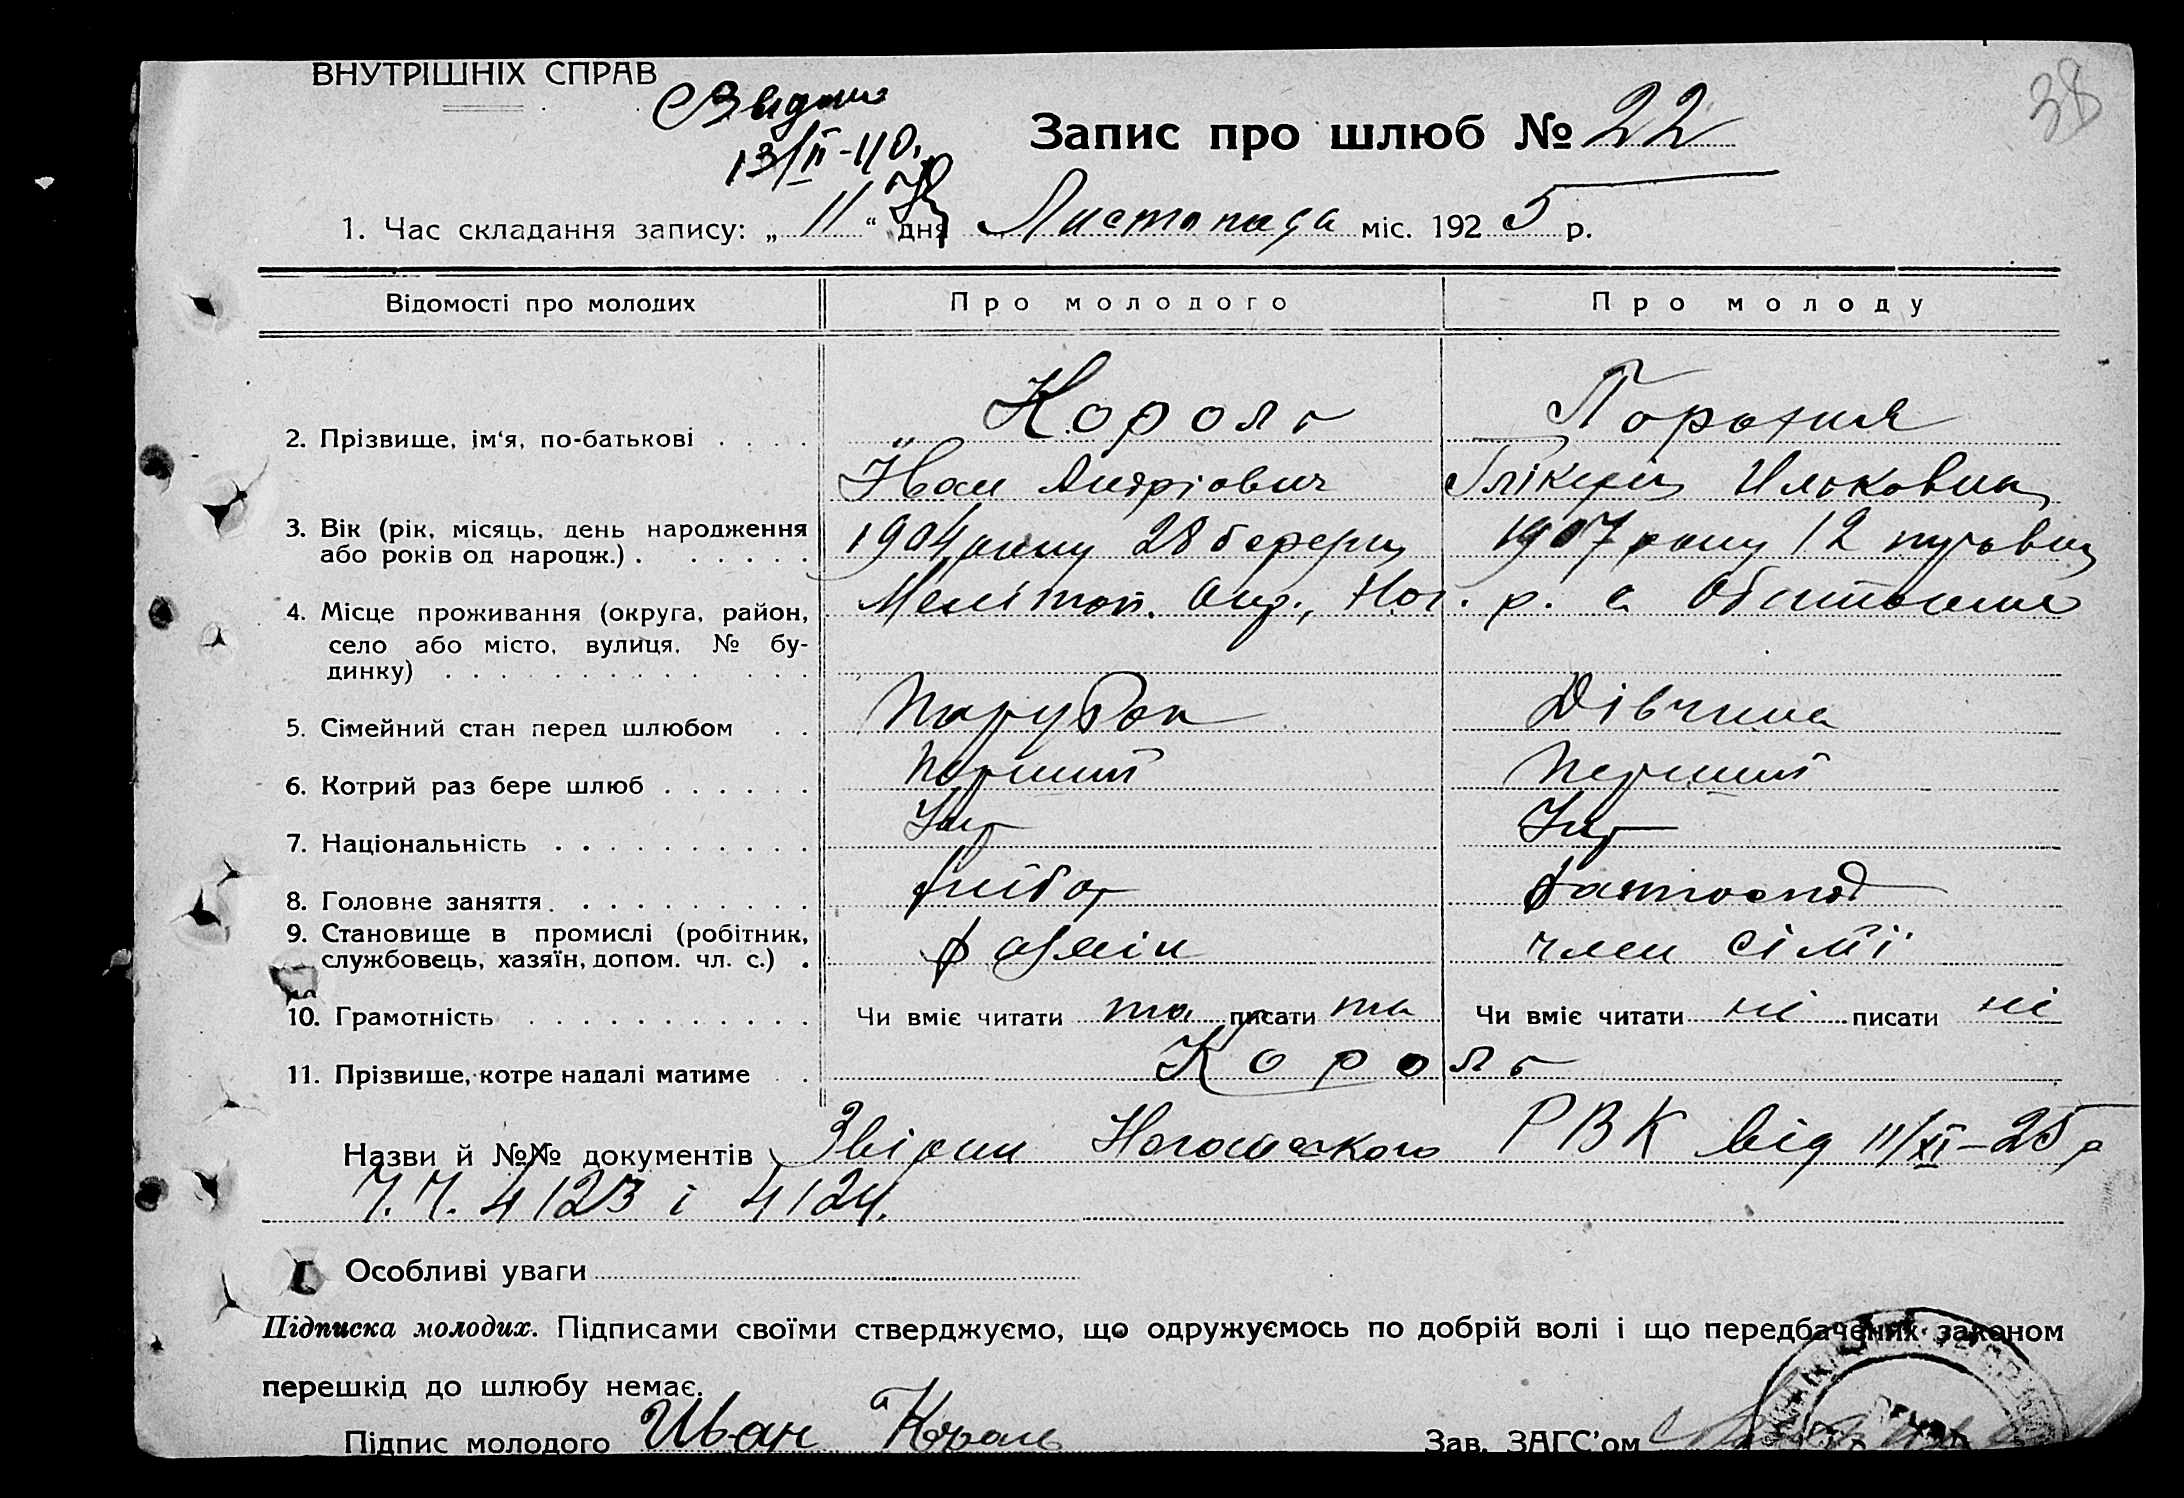 ВНУТРІШНІХ СПРАВ
38
13/II-40.
Запис про шлюб № 22
1. Час складання запису: „ 11 “ дня Листопада міс. 1925 р.
Відомості про молодих Про молодого Про молоду
2. Прізвище, ім‘я, по-батькові . . . . Король
Іван Андріович Ильковна
3. Вік (рік, місяць, день народження
або років од народж.) . . . . . . 1904 року 28 береж 1907 року 12
4. Місце проживання (округа, район, Мелітоп. Окр., Ног. р. с.
село або місто, вулиця, № бу-
динку) . . . . . . . . . . . . .
5. Сімейний стан перед шлюбом . . Парубок Дівчина
6. Котрий раз бере шлюб . . . . . . Перший Перший
7. Національність . . . . . . . . . . Укр Укр
8. Головне заняття . . . . . . . . . . хлібор
9. Становище в промислі (робітник,
службовець, хазяїн, допом. чл. с.) . хазяін член сімї
10. Грамотність . . . . . . . . . . . Чи вміє читати та писати та Чи вміє читати ні писати ні
11. Прізвище, котре надалі матиме . . Король
Назви й №№ документів Ногайського РВК від 11/XI-25 р
4123 і 4124.
Особливі уваги
Підписка молодих. Підписами своїми стверджуємо, що одружуємось по добрій волі і що передбачених законом
перешкід до шлюбу немає.
Підпис молодого Иван Король Зав. ЗАГС’ом